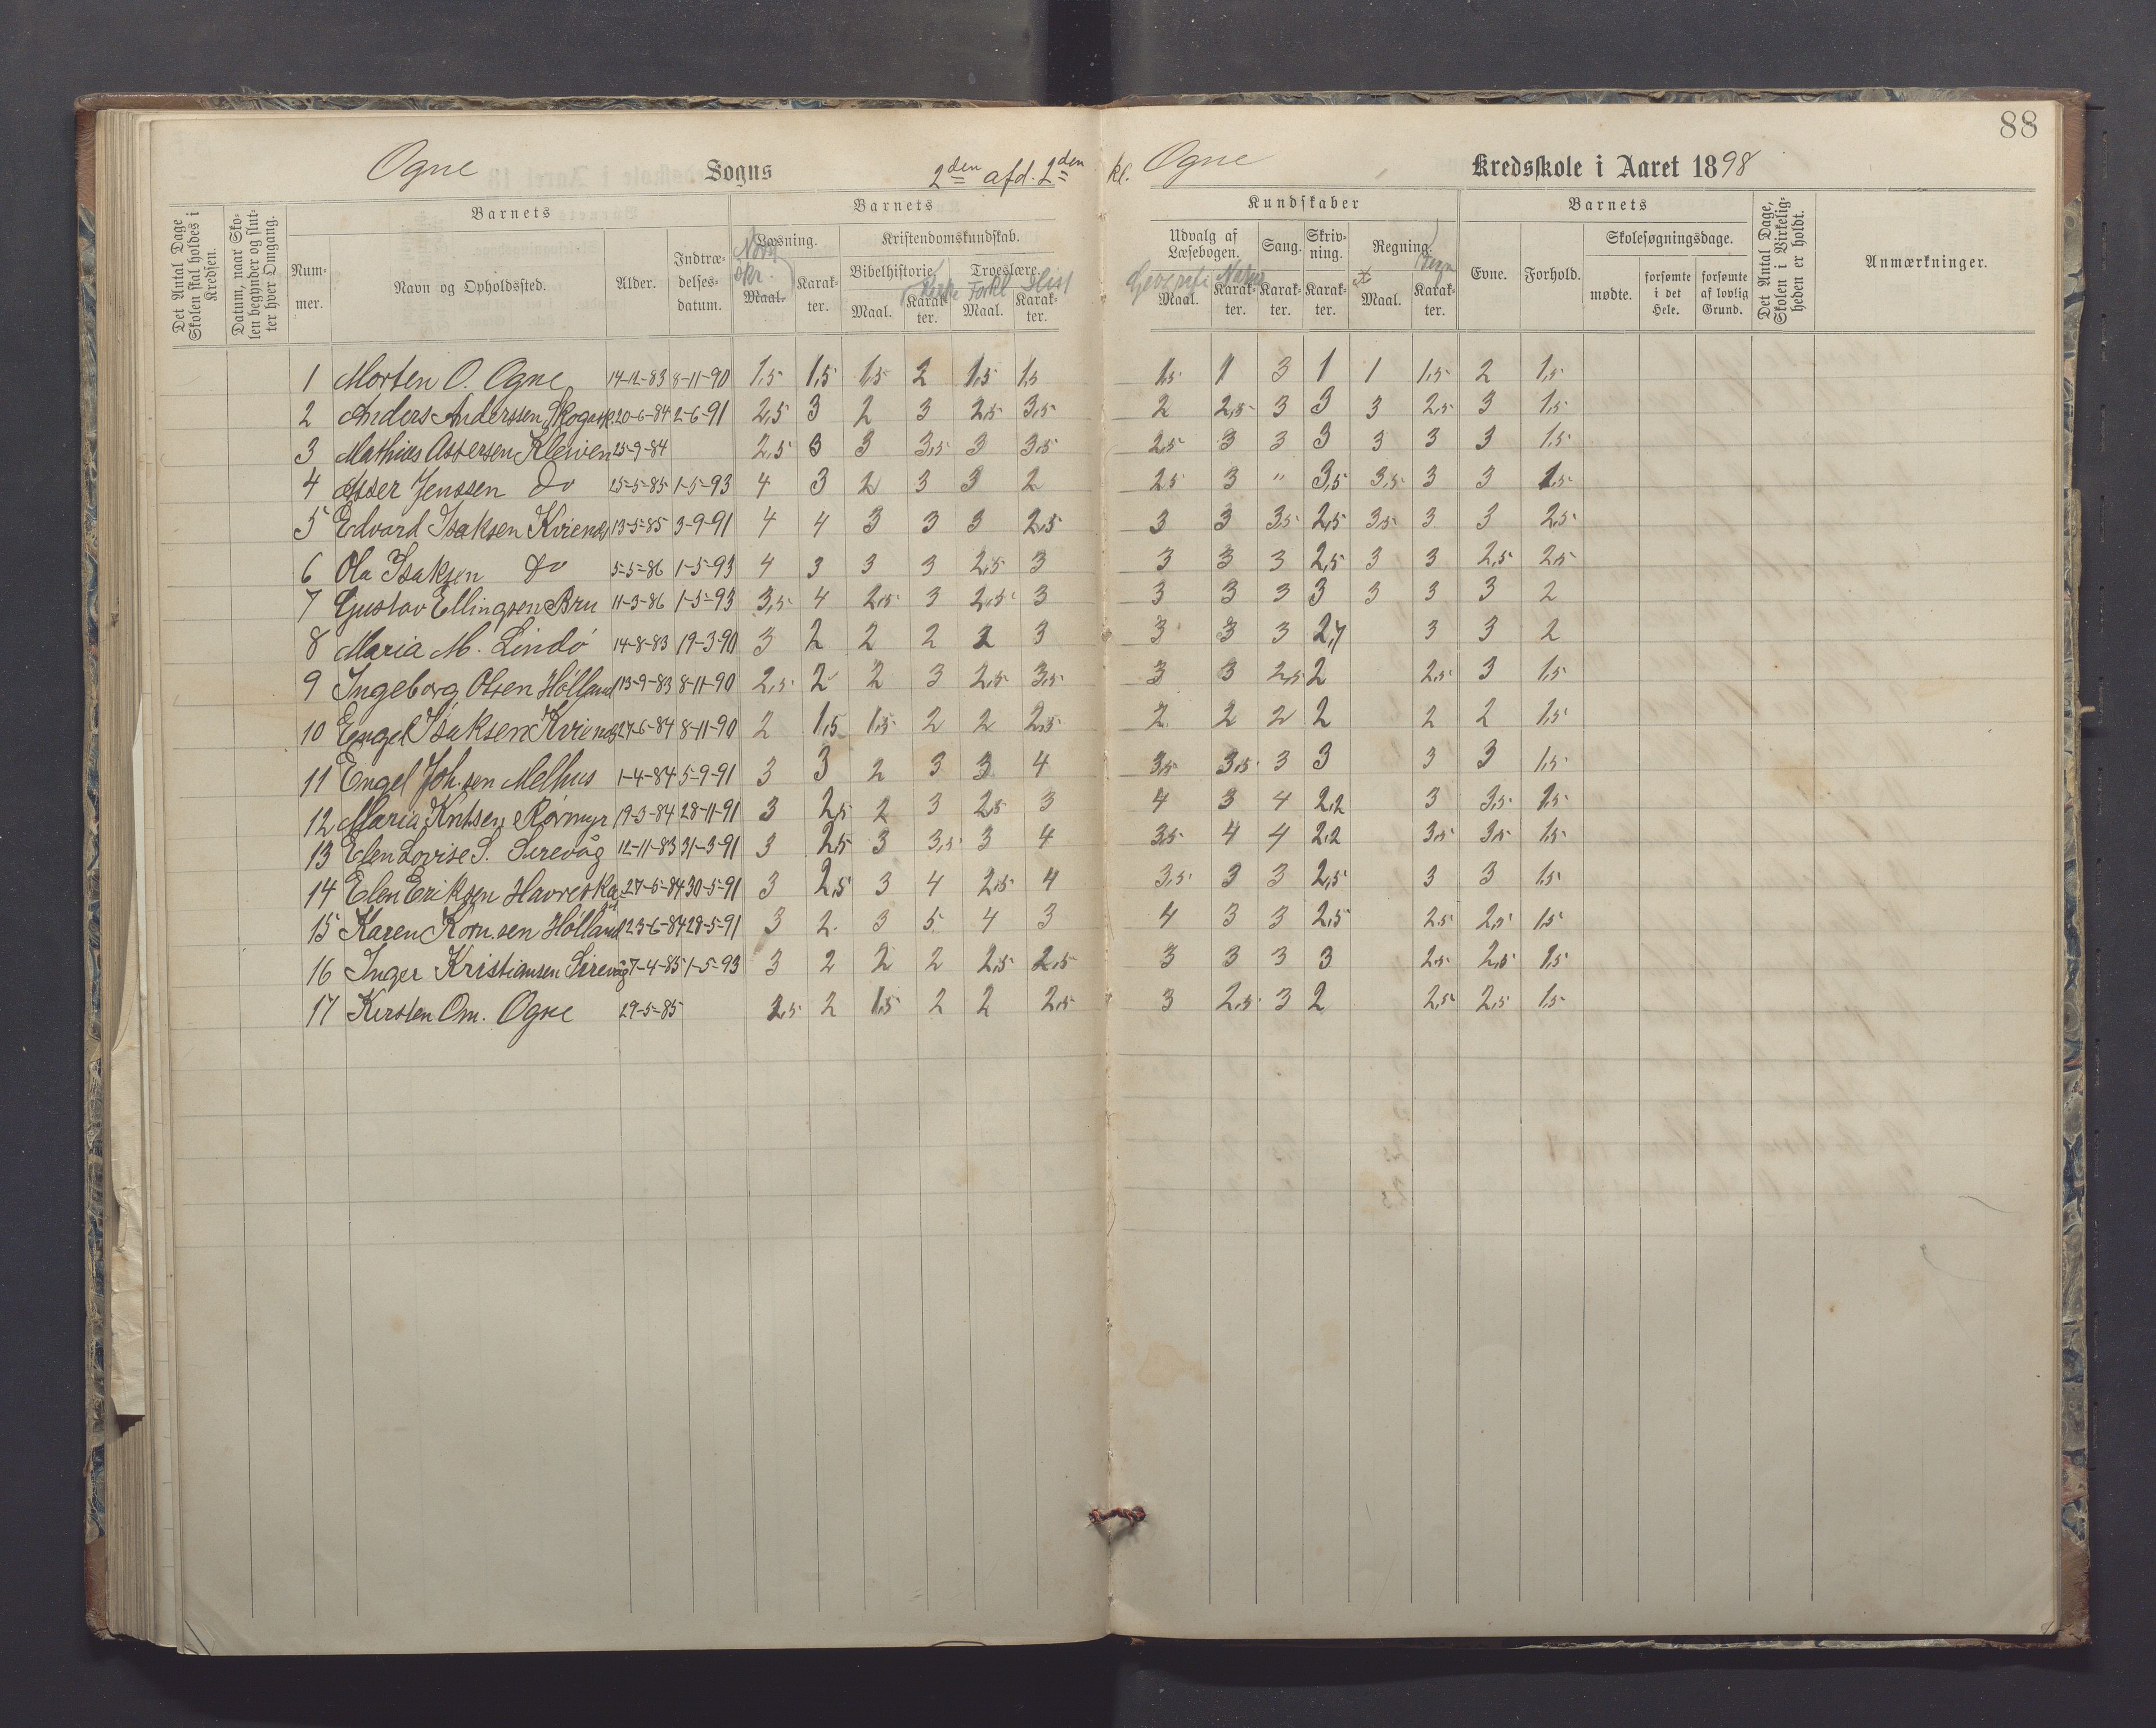 88
Ogne Sogns 2den afd. 2den kl. Ogne Kredsskole i Aaret 1898
Det Antal Dage Skolen skal holdes i Kredsen.
Datum, naar Skolen begynder og slutter hver Omgang.
Barnets Barnets Kundskaber Barnets
Nummer. Navn og Opholdssted. Alder. Indtrædelsesdatum.
Læsning. Maal. Karakter. Norsk skr.
Kristendomskundskab. Bibelhistorie. Maal. Karakter. Troeslære. Maal. Karakter. Forkl Hist
Udvalg af Læsebogen. Maal. Karakter. Geografi Natur
Sang. Karakter. Skrivning. Karakter. Regning. Maal. Karakter.
Evne. Forhold. Skolesøgningsdage. mødte. forsømte i det Hele. forsømte af lovlig Grund.
Det Antal Dage, Skolen i Virkeligheden er holdt.
Anmærkninger.
1 Morten O. Ogne 14-12-83 8-11-90 1,5 1,5 1,5 2 1,5 1,5 1,5 1 3 1 1 1,5 2 1,5
2 Anders Anderssen, Skogask. 20-6-84 2-6-91 2,5 3 2 3 2,5 3,5 2 2,5 3 3 3 2,5 3 1,5
3 Mathias Assersen Kleiven 25-9-84 2,5 3 3 3,5 3 3,5 2,5 3 3 3 3 3 3 1,5
4 Asser Jenssen do 25-5-85 1-5-93 4 3 2 3 3 2 2,5 3 " 3,5 3,5 3 3 1,5
5 Edvard Isaksen Kvienes 13-5-85 3-9-91 4 4 3 3 3 2,5 3 3 3,5 2,5 3,5 3 3 2,5
6 Ola Isaksen do 5-5-86 1-5-93 4 3 3 3 2,5 3 3 3 3 2,5 3 3 2,5 2,5
7 Gustav Ellingsen Bru 11-3-86 1-5-93 3,5 4 2,5 3 2,5 3 3 3 3 3 3 3 3 2
8 Maria M. Lindö 14-8-83 19-3-90 3 2 2 2 2 3 3 3 3 2,7 3 3 2
9 Ingeborg Olsen Hölland 13-9-83 8-11-90 2,5 2 2 3 2,5 3,5 3 3 2,5 2 2,5 3 1,5
10 Engel Isaksen Kvienes 27-6-84 8-11-90 2 1,5 1,5 2 2 2,5 2 2 2 2 2 2 1,5
11 Engel Joh.sen Melhus 1-4-84 5-9-91 3 3 2 3 3 4 3,5 3,5 3 3 3 3 1,5
12 Maria Kntsen Rörmyr 19-3-84 28-11-91 3 2,5 2 3 2,5 3 4 3 4 2,2 3 3,5 1,5
13 Elen Lovise S. Sirevåg 12-11-83 31-3-91 3 2,5 3 3,5 3 4 3,5 4 4 2,2 3,5 3,5 1,5
14 Elen Eriksen Havreska 27-5-84 30-5-91 3 2,5 3 4 2,5 4 3,5 3 3 2,5 3 3 1,5
15 Karen Korn.sen Hölland 23-6-84 28-5-91 3 2 3 5 4 3 4 3 3 2,5 2,5 2,5 1,5
16 Inger Kristiansen Sirevåg 7-4-85 1-5-93 3 2 2 2 2,5 2,5 3 3 3 3 2,5 2,5 1,5
17 Kirsten Om. Ogne 29-5-85 2,5 2 1,5 2 2 2,5 3 2,5 3 2 2,5 2,5 1,5